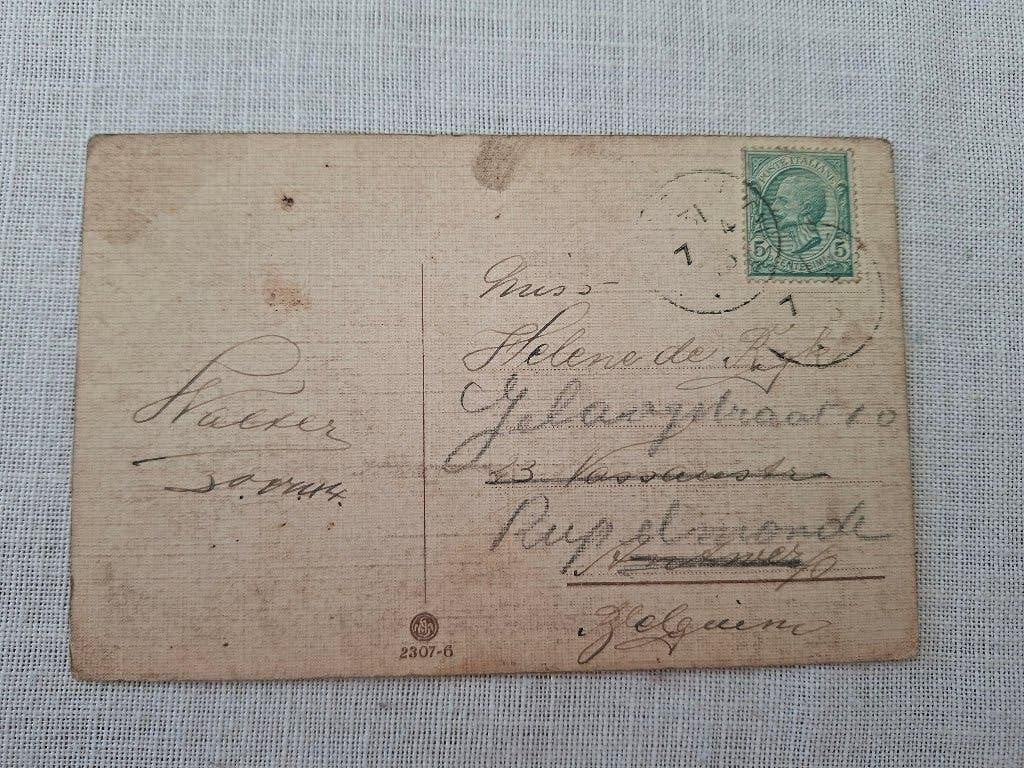 POSTE ITALIANE
5 5
CENTESIMI
7
7
Miss
Helene de
Gelaegstraat 10
23 Nassaustr
Rupelmonde
Antwerp
Belguim
Walter
2307-6